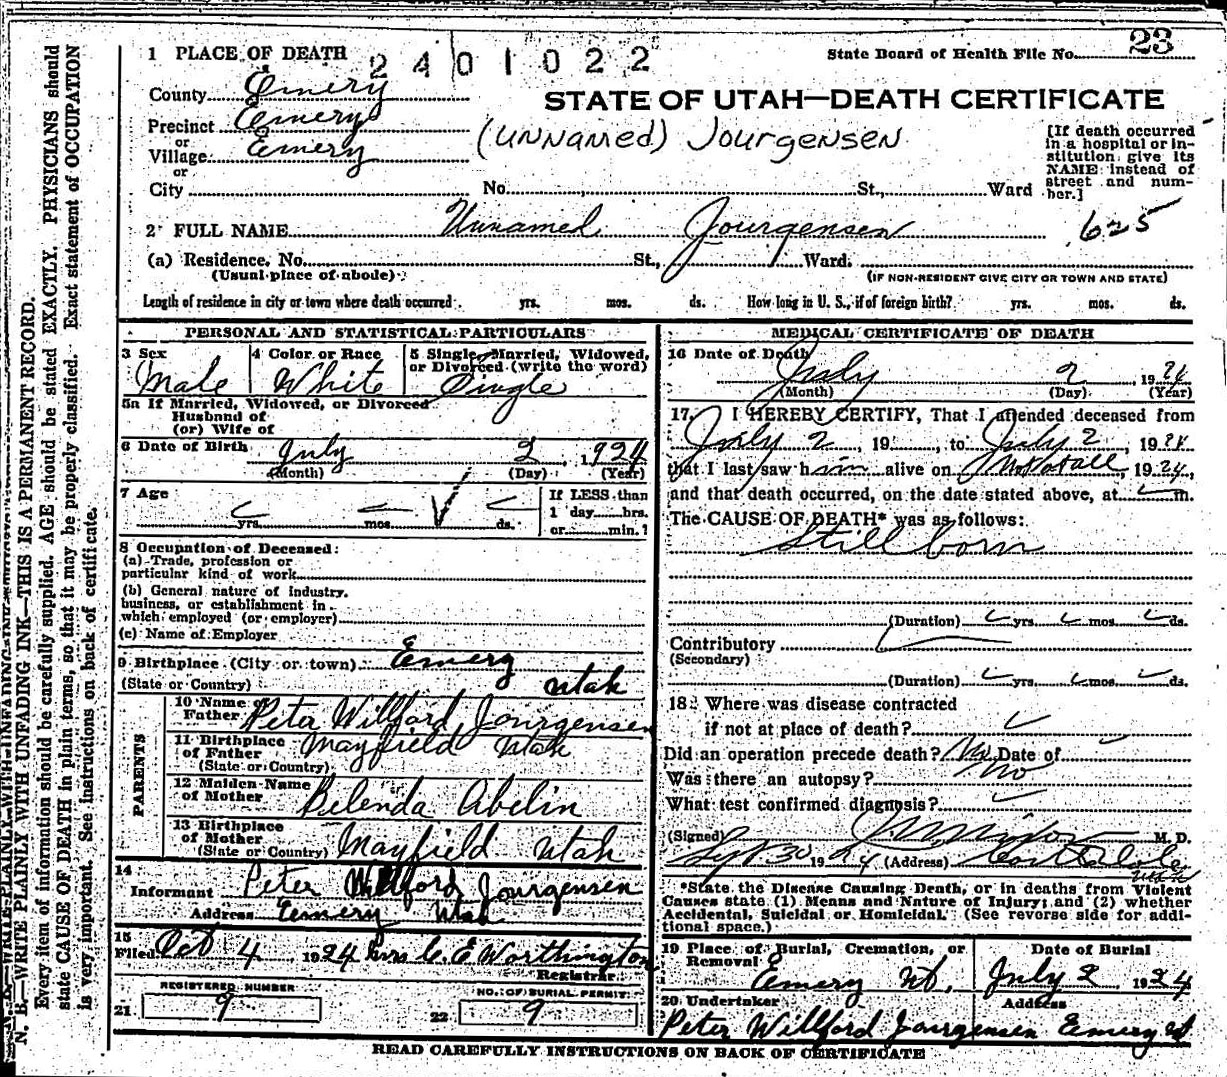 N. B.—WRITE PLAINLY WITH UNFADING INK—THIS IS A PERMANENT RECORD.
Every item of information should be carefully supplied. AGE should be stated EXACTLY. PHYSICIANS should
state CAUSE OF DEATH in plain terms, so that it may be properly classified. Exact statement of OCCUPATION
is very important. See instructions on back of certificate.
1 PLACE OF DEATH
2401022
State Board of Health File No. 23
County Emery
STATE OF UTAH—DEATH CERTIFICATE
Precinct Emery
or
Village Emery
or
(UNNAMED) JOURGENSEN
[If death occurred
in a hospital or in-
stitution give its
NAME instead of
street and num-
ber.]
City No. St., Ward
2 FULL NAME Unnamed Jourgensen
625
(a) Residence. No. St., Ward.
(Usual place of abode) (IF NON-RESIDENT GIVE CITY OR TOWN AND STATE)
Length of residence in city or town where death occurred. yrs. mos. ds. How long in U. S., if of foreign birth? yrs. mos. ds.
PERSONAL AND STATISTICAL PARTICULARS
3 Sex
Male
4 Color or Race
White
5 Single, Married, Widowed,
or Divorced (write the word)
Single
5a If Married, Widowed, or Divorced
Husband of
(or) Wife of
6 Date of Birth July 2, 1924
(Month) (Day) (Year)
7 Age
yrs. mos. ds.
If LESS than
1 day hrs.
or min.?
8 Occupation of Deceased:
(a) Trade, profession or
particular kind of work
(b) General nature of industry,
business, or establishment in
which employed (or employer)
(c) Name of Employer
9 Birthplace (City or town) Emery
(State or Country) Utah
PARENTS
10 Name of
Father Peter Willford Jourgensen
11 Birthplace
of Father Mayfield Utah
(State or Country)
12 Maiden Name
of Mother Belenda Abelin
13 Birthplace
of Mother
(State or Country) Mayfield Utah
14
Informant Peter Willford Jourgensen
Address Emery Utah
15
Filed Oct 4 1924 Mrs C. E Worthington
Registrar
REGISTERED NUMBER
21 9
NO. OF BURIAL PERMIT
22 9
MEDICAL CERTIFICATE OF DEATH
16 Date of Death
July 2, 1924
(Month) (Day) (Year)
17. I HEREBY CERTIFY, That I attended deceased from
July 2, 19 , to July 2 1924
that I last saw him alive on Not at all, 1924,
and that death occurred, on the date stated above, at m.
The CAUSE OF DEATH* was as follows:
Still born
(Duration) yrs. mos. ds.
Contributory
(Secondary)
(Duration) yrs. mos. ds.
18 Where was disease contracted
if not at place of death?
Did an operation precede death? No Date of
No
Was there an autopsy?
What test confirmed diagnosis?
(Signed) M. D.
Sept 30 1924 (Address) Castle Dale
Utah
*State the Disease Causing Death, or in deaths from Violent
Causes state (1) Means and Nature of Injury; and (2) whether
Accidental, Suicidal or Homicidal. (See reverse side for addi-
tional space.)
19 Place of Burial, Cremation, or
Removal
Emery Ut.
Date of Burial
July 2 1924
20 Undertaker Address
Peter Willford Jourgensen Emery Ut
READ CAREFULLY INSTRUCTIONS ON BACK OF CERTIFICATE